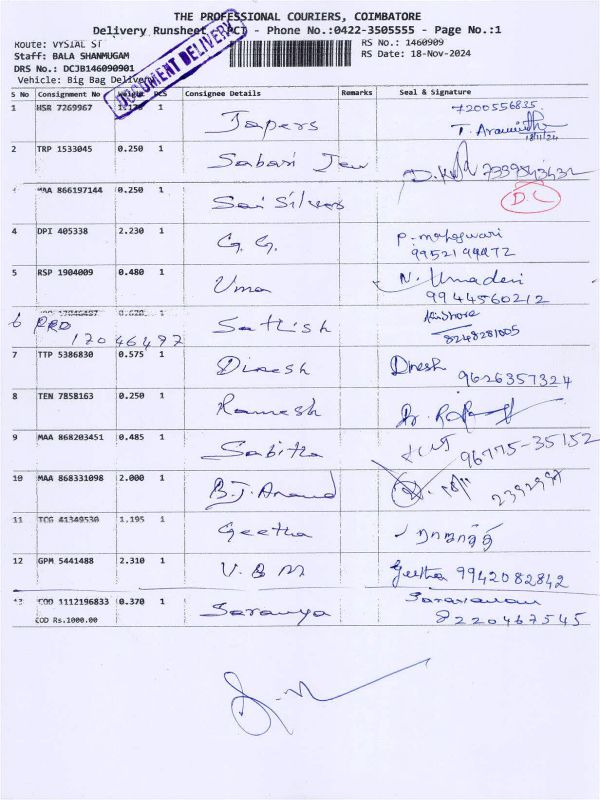 THE PROFESSIONAL COURIERS, COIMBATORE
Delivery Runsheet - PCT - Phone No.:0422-3505555 - Page No.:1
Route: VYSIAL ST
RS No.: 1460909
Staff: BALA SHANMUGAM
RS Date: 18-Nov-2024
DRS No.: DCJB146090901
Vehicle: Big Bag Delivery
DOCUMENT DELIVERY
S No Consignment No Weight PCS Consignee Details Remarks Seal & Signature
1 HSR 7269967 1 Japers 7200556835
T. Aravindh
18/11/24
2 TRP 1533045 0.250 1 Sabari Jew 7339843432
MAA 866197144 0.250 1 Sai Silver D.C
4 DPI 405338 2.230 1 G. G. P. maheswari
9952194472
5 RSP 1904009 0.480 1 Uma N. Umadevi
9944560212
6 PRD 17046497 1 Sathish Kishore
8248281005
7 TTP 5386830 0.575 1 Dinesh Dinesh
9626357324
8 TEN 7858163 0.250 1 Ramesh
9 MAA 868203451 0.485 1 Sabitha 96775-35152
10 MAA 868331098 2.000 1 B.J. Anand
11 TCG 41349530 1.195 1 Geetha
12 GPM 5441488 2.310 1 V.B.M Geetha 9942082842
13 COD 1112196833 0.370 1 Saranya Saravanan
COD Rs.1000.00 8220467545